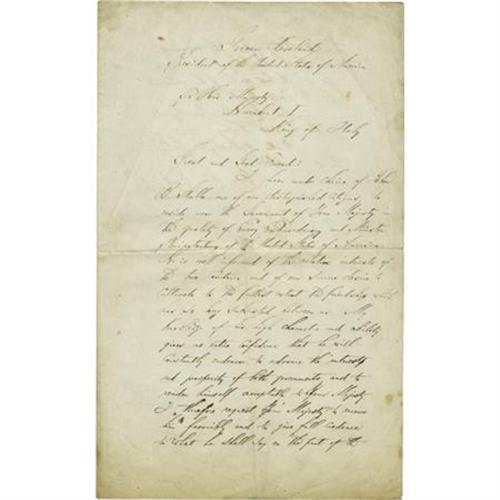 Grover Cleveland
President of the United States of America
To His Majesty
Humbert I
King of Italy
Great and Good Friend:
I have made choice of John
B. Stallo one of our distinguished citizens, to
reside near the Government of Your Majesty in
the quality of Envoy Extraordinary and Minister
Plenipotentiary of the United States of America.
He is well informed of the relative interests of
the two countries and of our sincere desire to
cultivate to the fullest extent the friendship which
has so long subsisted between us. My
knowledge of his high character and ability
gives me entire confidence that he will
constantly endeavor to advance the interests
and prosperity of both governments, and to
render himself acceptable to Your Majesty
I therefore request Your Majesty to receive
him favorably and to give full credence
to what he shall say on the part of the